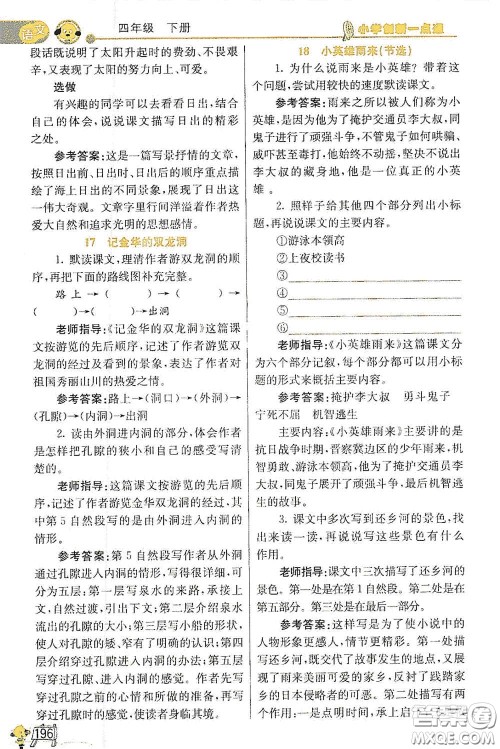 语文
四年级 下册
小学创新一点通
段话既说明了太阳升起时的费劲、不畏艰
辛,又表现了太阳的努力向上、可爱。
选做
有兴趣的同学可以去看看日出,结
合自己的体会,说说课文描写日出的精彩
之处。
参考答案:这是一篇写景抒情的文章,
按照日出前、日出时、日出后的顺序重点描
绘了海上日出的不同景象,展现了日出这
一伟大奇观。文章字里行间洋溢着作者热
爱大自然和追求光明的思想感情。
17 记金华的双龙洞
1. 默读课文,理清作者游双龙洞的顺
序,再把下面的路线图补充完整。
路上→( )→( )→( )
→( )→出洞
老师指导:《记金华的双龙洞》这篇课
文按游览的先后顺序,记述了作者游览双
龙洞的经过及看到的景象,表达了作者对
祖国秀丽山川的热爱之情。
参考答案:路上→(洞口)→(外洞)→
(孔隙)→(内洞)→出洞
2. 读由外洞进入内洞的部分,体会作者
是怎样把孔隙的狭小和自己的感受写清
楚的。
老师指导:这篇课文按游览的先后顺
序,记述了作者游览金华双龙洞的经过,其
中第5自然段写的是由外洞进入内洞的
情形。
参考答案:第5自然段写作者从外洞
通过孔隙进入内洞的情形,写得很详细,可
分为五层,第一层写水的来路,承接上文,
直接引出下文;第二层介绍水由泉水流
出的孔隙的大小,第三层写小船的形状,使
人对孔隙的矮、窄有了更明确的了解;第四
层介绍穿过孔隙进入内洞的办法;第五层
写穿过孔隙进入内洞的感受。作者把写穿
过孔隙之前的心情和所做的准备,再写穿
过时的感受,使读者身临其境。
196
18 小英雄雨来(节选)
1. 为什么说雨来是小英雄?带着这个
问题,尝试用较快的速度默读课文。
参考答案:雨来之所以被人们称为小
英雄,是因为他为了掩护交通员李大叔,同
鬼子进行了顽强斗争,不管鬼子如何哄骗、
威吓甚至毒打,他始终没有向鬼子说出
李大叔的藏身地,他是一个真正的小英
雄。
2. 照样子给其他四个部分列出小标
题,再说说课文的主要内容。
①游泳本领高
②上夜校读书
③
④
⑤
⑥
老师指导:《小英雄雨来》这篇课文分
为六个部分记叙,每个部分都可以用小标
题的形式来概括主要内容。
参考答案:掩护李大叔 勇斗鬼子
宁死不屈 机智逃生
主要内容:《小英雄雨来》主要讲的是
抗日战争时期,晋察冀边区的少年雨来,机
智勇敢、游泳本领高,他为了掩护交通员李
大叔,同鬼子展开了顽强斗争,最后机智逃
生的故事。
3. 课文中多次写到还乡河的景色,找
出来读一读,再和同学交流这样写有
什么作用。
老师指导:课文中三次描写了还乡河
的景色。第一处是在第1自然段。第二处是在
第五部分。第三处是在最后部分。
参考答案:这样写是为了使小说中的
人物形象更感人,情节更精彩。第一处描
写还乡河,既交代了故事发生的地点,又表
现了雨来美丽可爱的家乡,反衬了践踏家
乡的日本侵略者的可恨。第二处描写有两